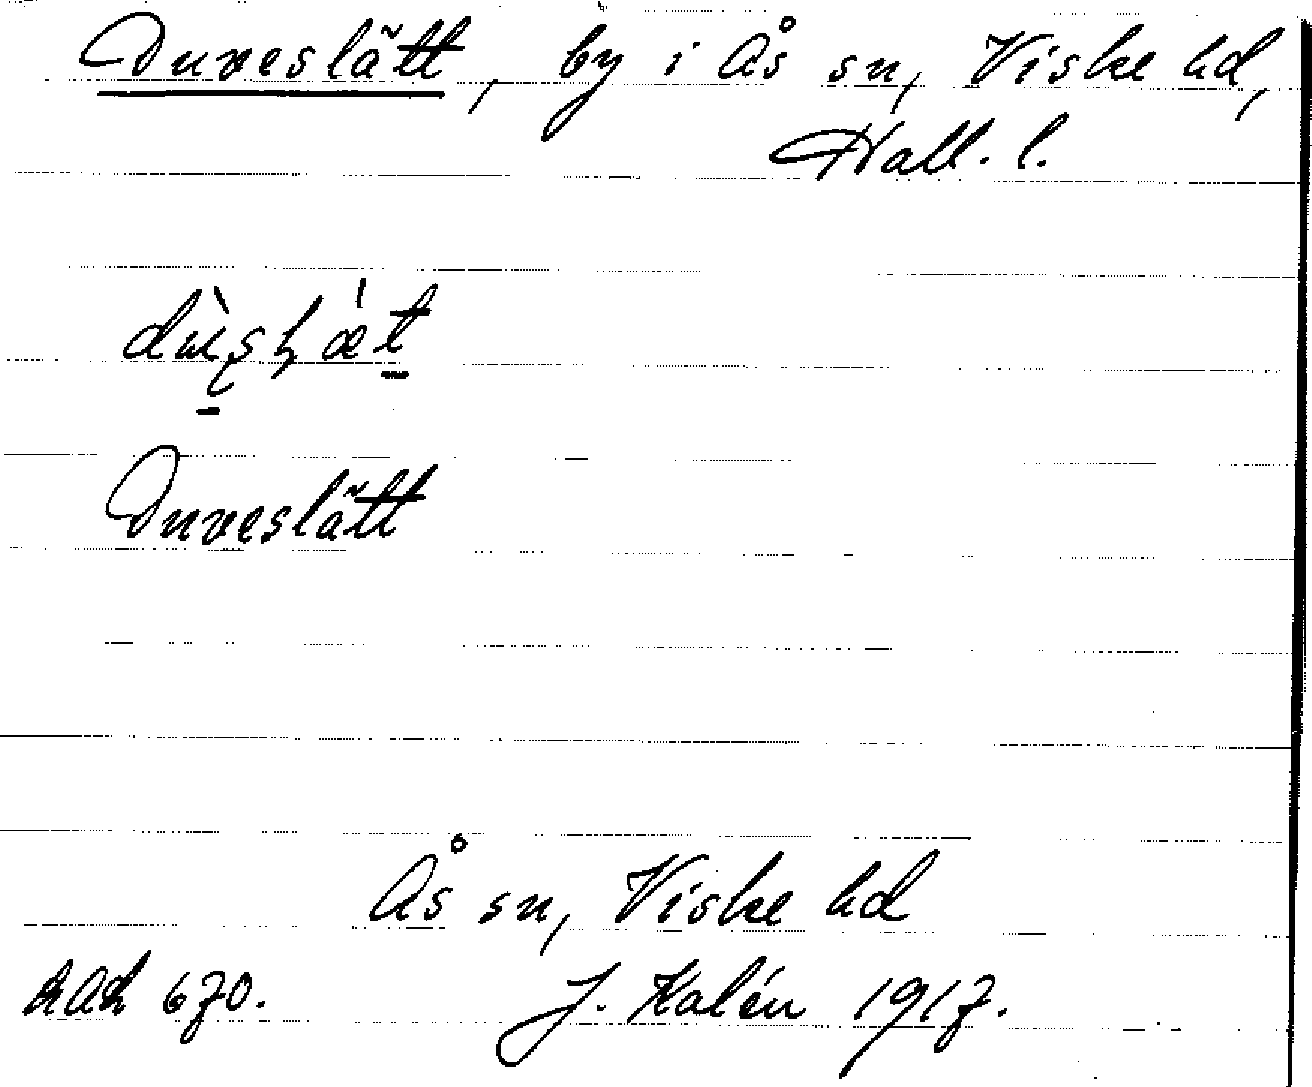 Duveslätt, by i Ås sn, Viske hd,
Hall. l.
Duveslätt
Ås sn, Viske hd
670.
J. Kalén 1917.